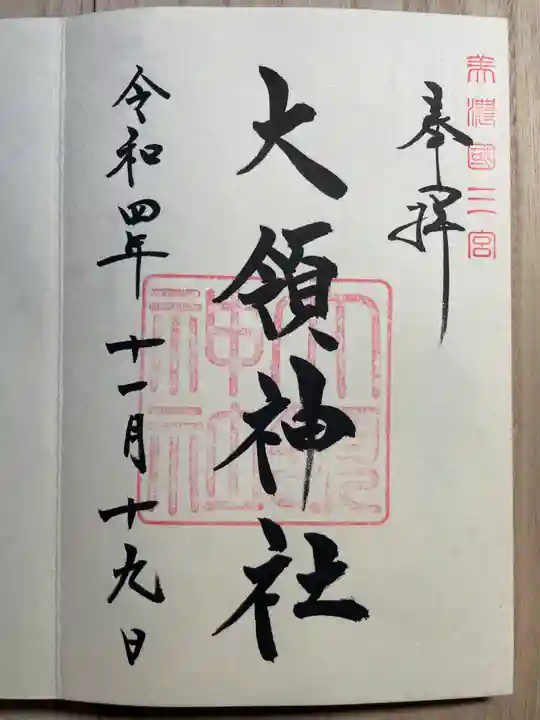 美濃國二宮
奉拝
大領神社
令和四年 十一月 十九日